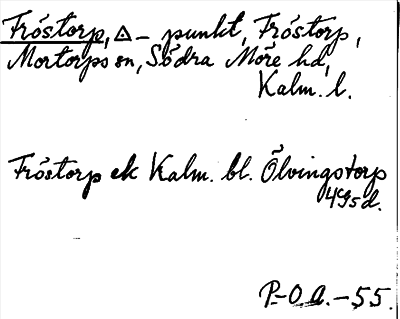 Fröstorp, △ – punkt, Fröstorp,
Mortorps sn, Södra Möre hd,
Kalm. l.
Fröstorp ek Kalm. bl. Ölvingstorp
4G5d.
P.-O.A.–55.